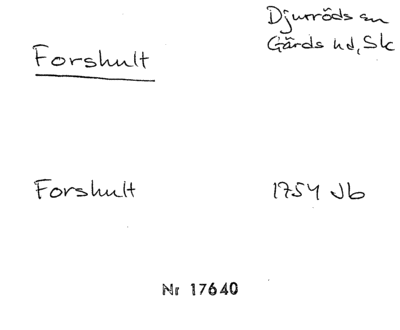 Djurröds sn
Gärds hd, Sk
Forshult
Forshult 1754 Jb
Nr 17640